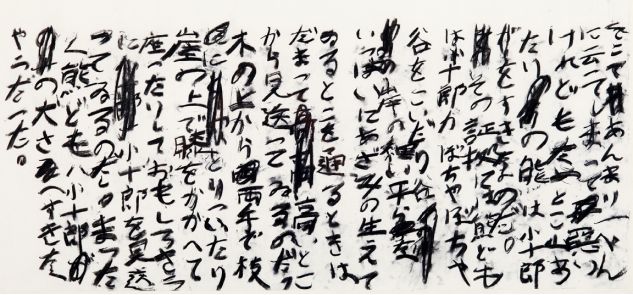 そこであんまり一ぺん
に云ってしまって悪い
けれどもなめとこ山あ
たりの熊は小十郎
がをすきなのだ。
その証拠には熊ども
は小十郎がぼちゃぼちゃ
谷をこいだり谷
の岸の細い平らな
いっぱいにあざみの生えて
ゐるとこを通るときは
だまって高いとこ
から見送ってゐるのだ
木の上から両手で枝
にとりついたり
崖の上で膝をかかへて
座ったりしておもしろさう
に小十郎を見送
ってゐるのだ。まった
く熊どもハ小十郎が
の犬さへすきな
やうだった。